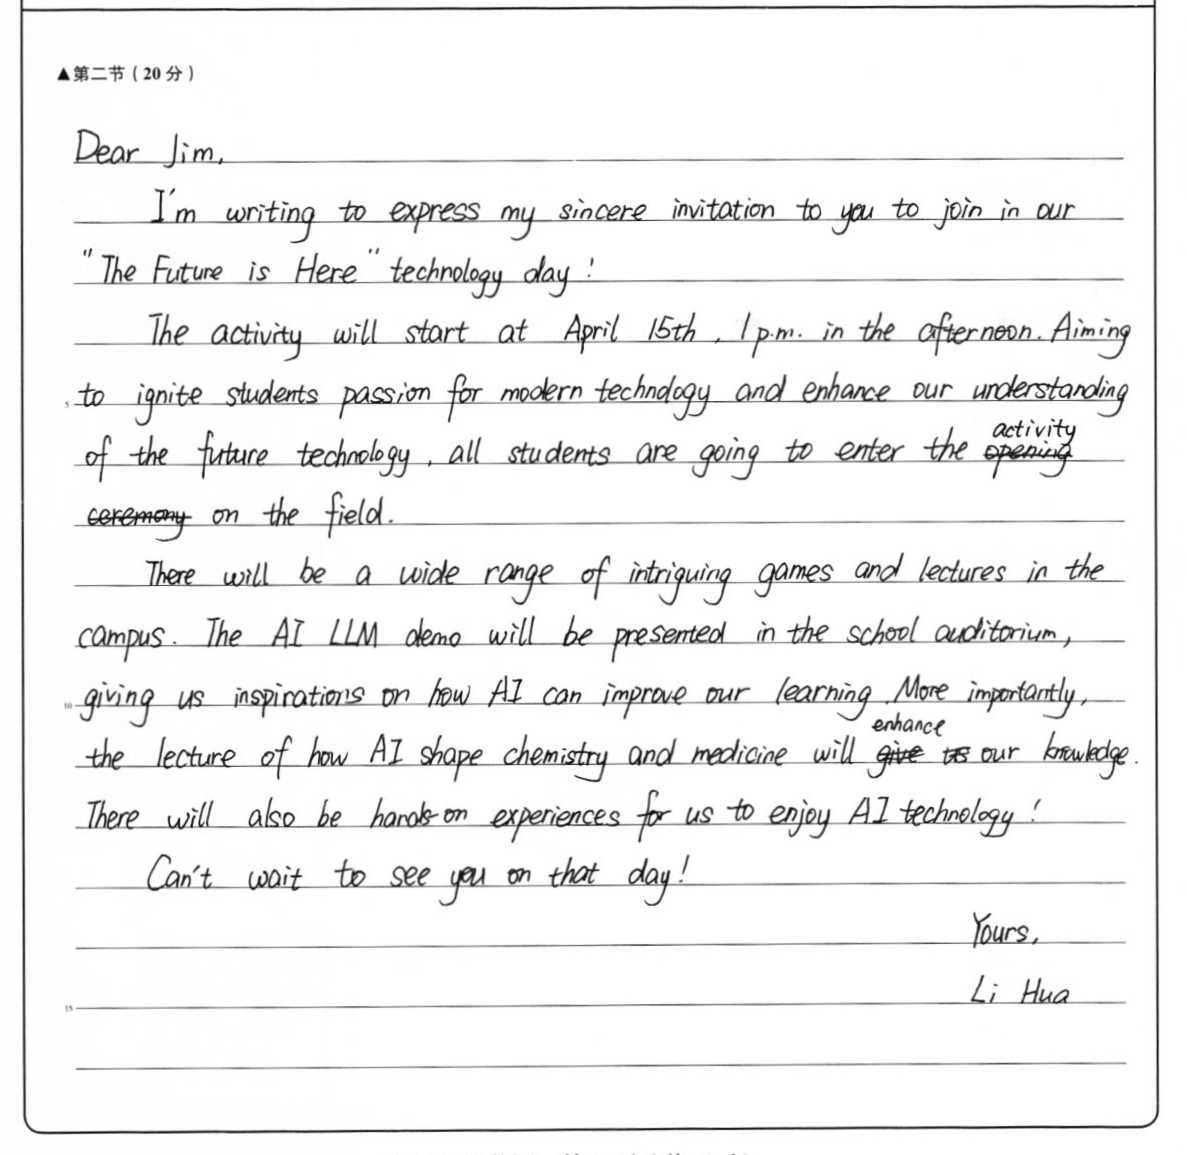 ▲第二节（20 分）
Dear Jim,
I'm writing to express my sincere invitation to you to join in our
"The Future is Here" technology day!
The activity will start at April 15th, 1 p.m. in the afternoon. Aiming
5 to ignite students passion for modern technology and enhance our understanding
activity
of the future technology, all students are going to enter the opening
ceremony on the field.
There will be a wide range of intriguing games and lectures in the
campus. The AI LLM demo will be presented in the school auditorium,
10 giving us inspirations on how AI can improve our learning. More importantly,
enhance
the lecture of how AI shape chemistry and medicine will give us our knowledge.
There will also be hands-on experiences for us to enjoy AI technology!
Can't wait to see you on that day!
Yours,
15 Li Hua